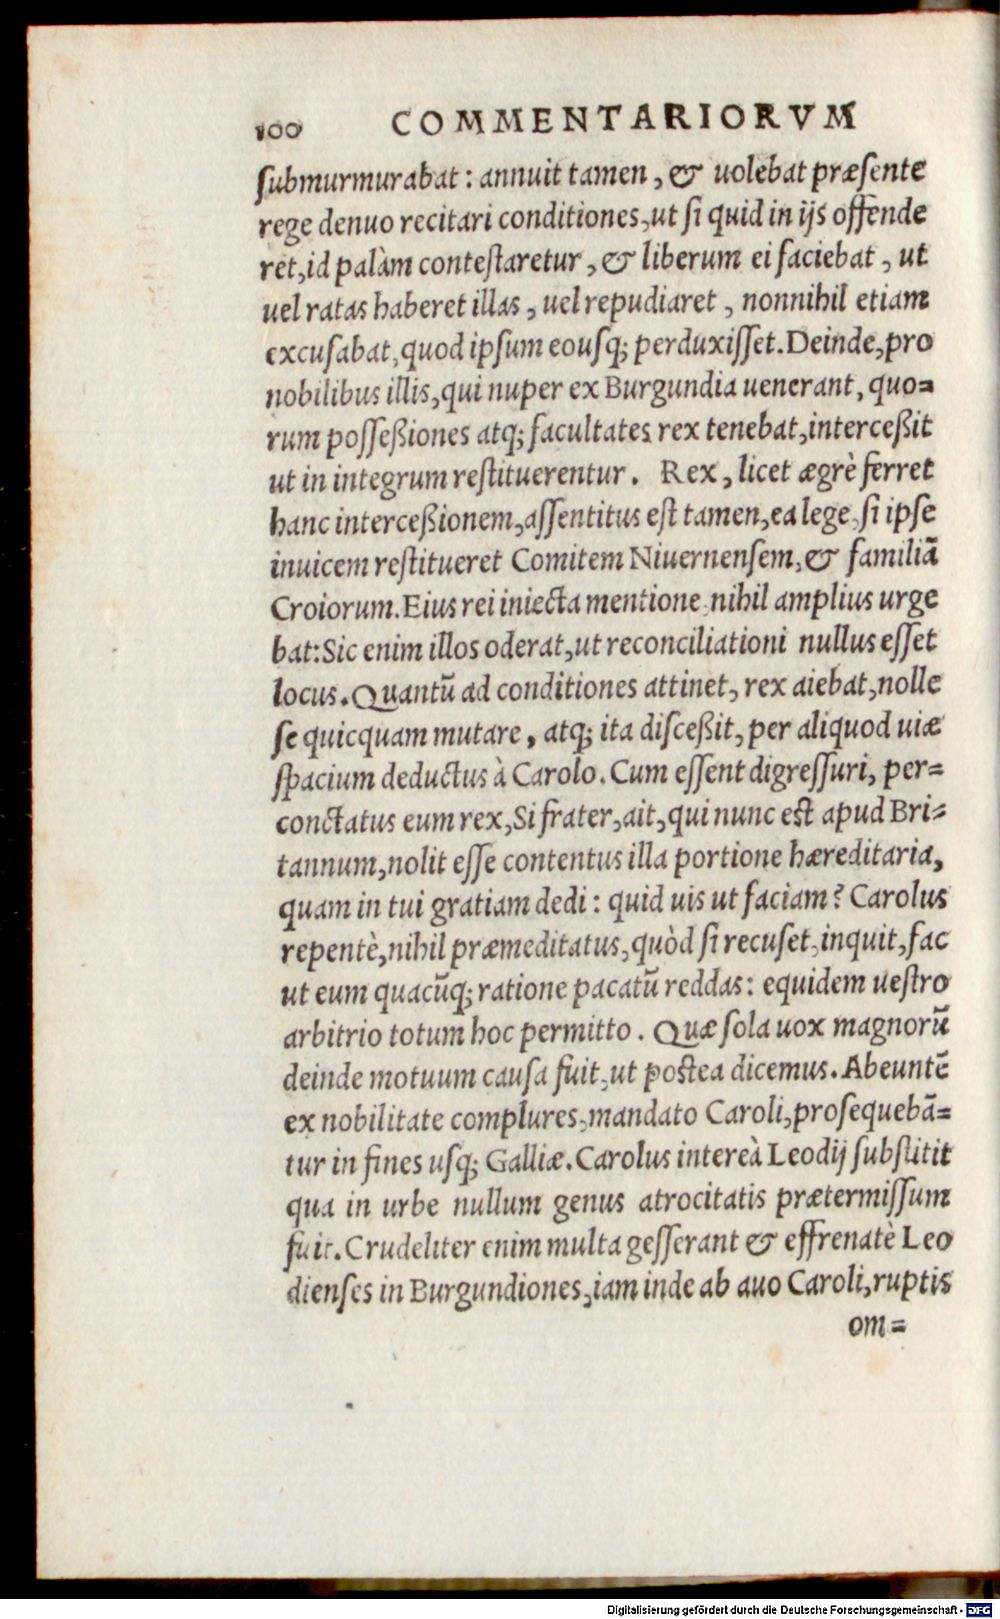 100 COMMENTARIORVM
submurmurabat: annuit tamen, & uolebat præsente
rege denuo recitari conditiones, ut si quid in ijs offende
ret, id palàm contestaretur, & liberum ei faciebat, ut
uel ratas haberet illas, uel repudiaret, nonnihil etiam
excusabat, quod ipsum eousq; perduxisset. Deinde, pro
nobilibus illis, qui nuper ex Burgundia uenerant, quo=
rum posseßiones atq; facultates rex tenebat, interceßit
ut in integrum restituerentur. Rex, licet ægrè ferret
hanc interceßionem, assentitus est tamen, ea lege, si ipse
inuicem restitueret Comitem Niuernensem, & familiā
Croiorum. Eius rei iniecta mentione nihil amplius urge
bat: Sic enim illos oderat, ut reconciliationi nullus esset
locus. Quantū ad conditiones attinet, rex aiebat, nolle
se quicquam mutare, atq; ita disceßit, per aliquod uiæ
spacium deductus à Carolo. Cum essent digressuri, per=
conctatus eum rex, Si frater, ait, qui nunc est apud Bri=
tannum, nolit esse contentus illa portione hæreditaria,
quam in tui gratiam dedi: quid uis ut faciam? Carolus
repentè, nihil præmeditatus, quòd si recuset, inquit, fac
ut eum quacūq; ratione pacatū reddas: equidem uestro
arbitrio totum hoc permitto. Quæ sola uox magnorū
deinde motuum causa fuit, ut postea dicemus. Abeuntē
ex nobilitate complures, mandato Caroli, prosequebā=
tur in fines usq; Galliæ. Carolus intereà Leodij substitit
qua in urbe nullum genus atrocitatis prætermissum
fuit. Crudeliter enim multa gesserant & effrenatè Leo
dienses in Burgundiones, iam inde ab auo Caroli, ruptis
om=
Digitalisierung gefördert durch die Deutsche Forschungsgemeinschaft - DFG